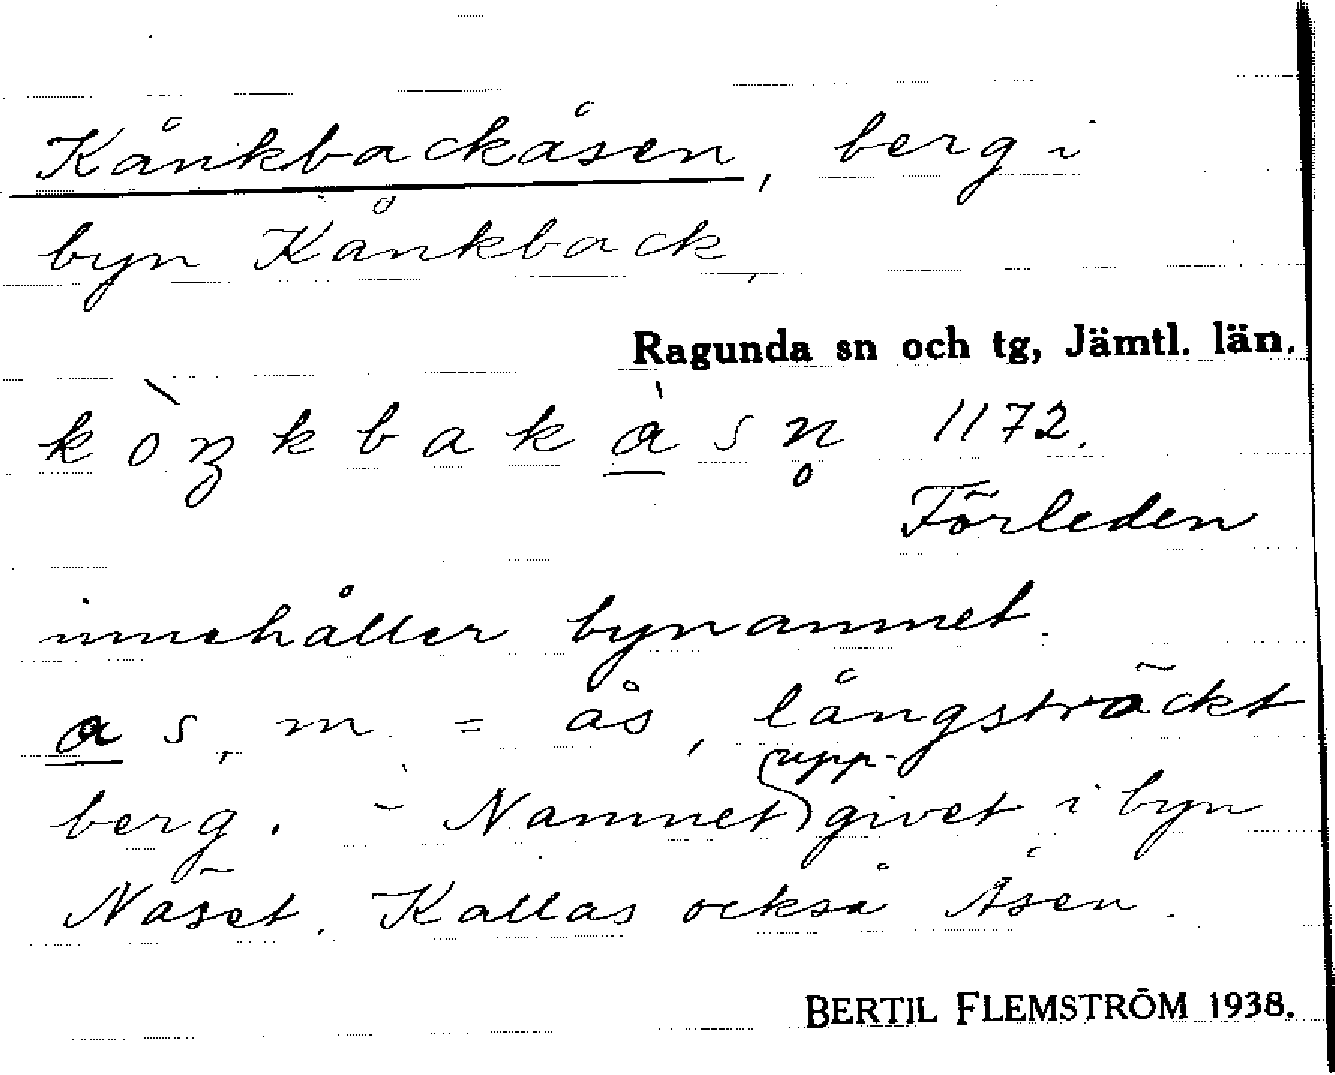 Kånkbackåsen, berg i
byn Kånkback,
Ragunda sn och tg, Jämtl. län.
kòŋkbakàsn̥ 1172.
Förleden
innehåller bynamnet.
as, m. = ås, långsträckt
berg. - Namnet upp-
givet i byn
Näset. Kallas också Åsen.
BERTIL FLEMSTRÖM 1938.